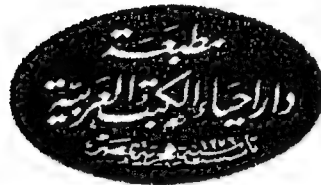 مطبعة
دار احياء الكتب العربية